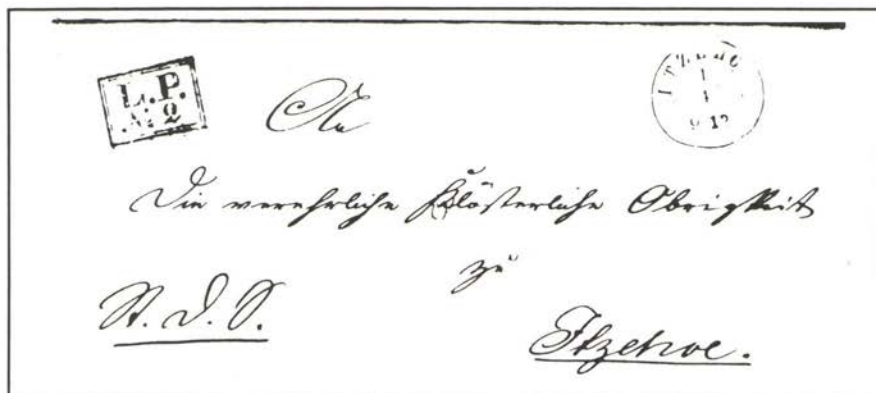 L.P.
No 2
ITZEHOE
1
4
9-12
An
Die verehrliche Klösterliche Obrigkeit
zu
Itzehoe.